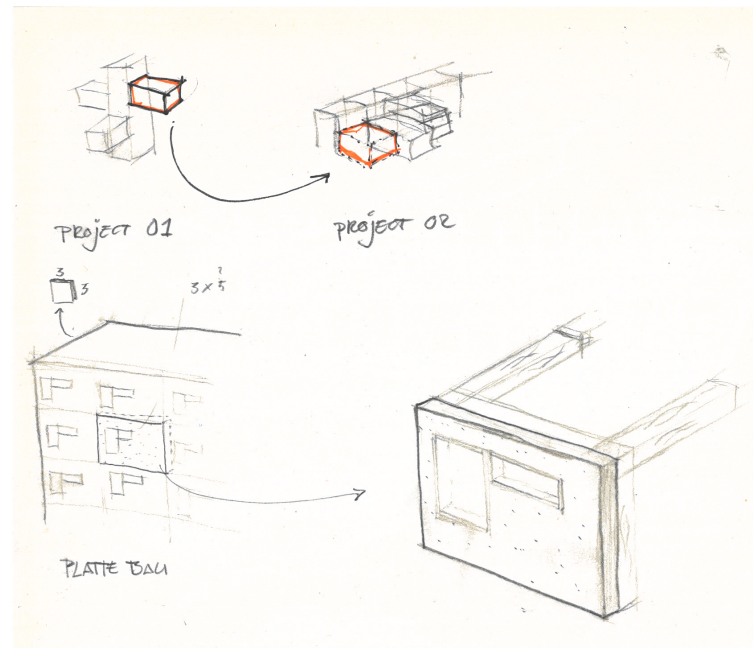 PROJECT 01
PROJECT 02
3
3
3 x
PLATTE BAU